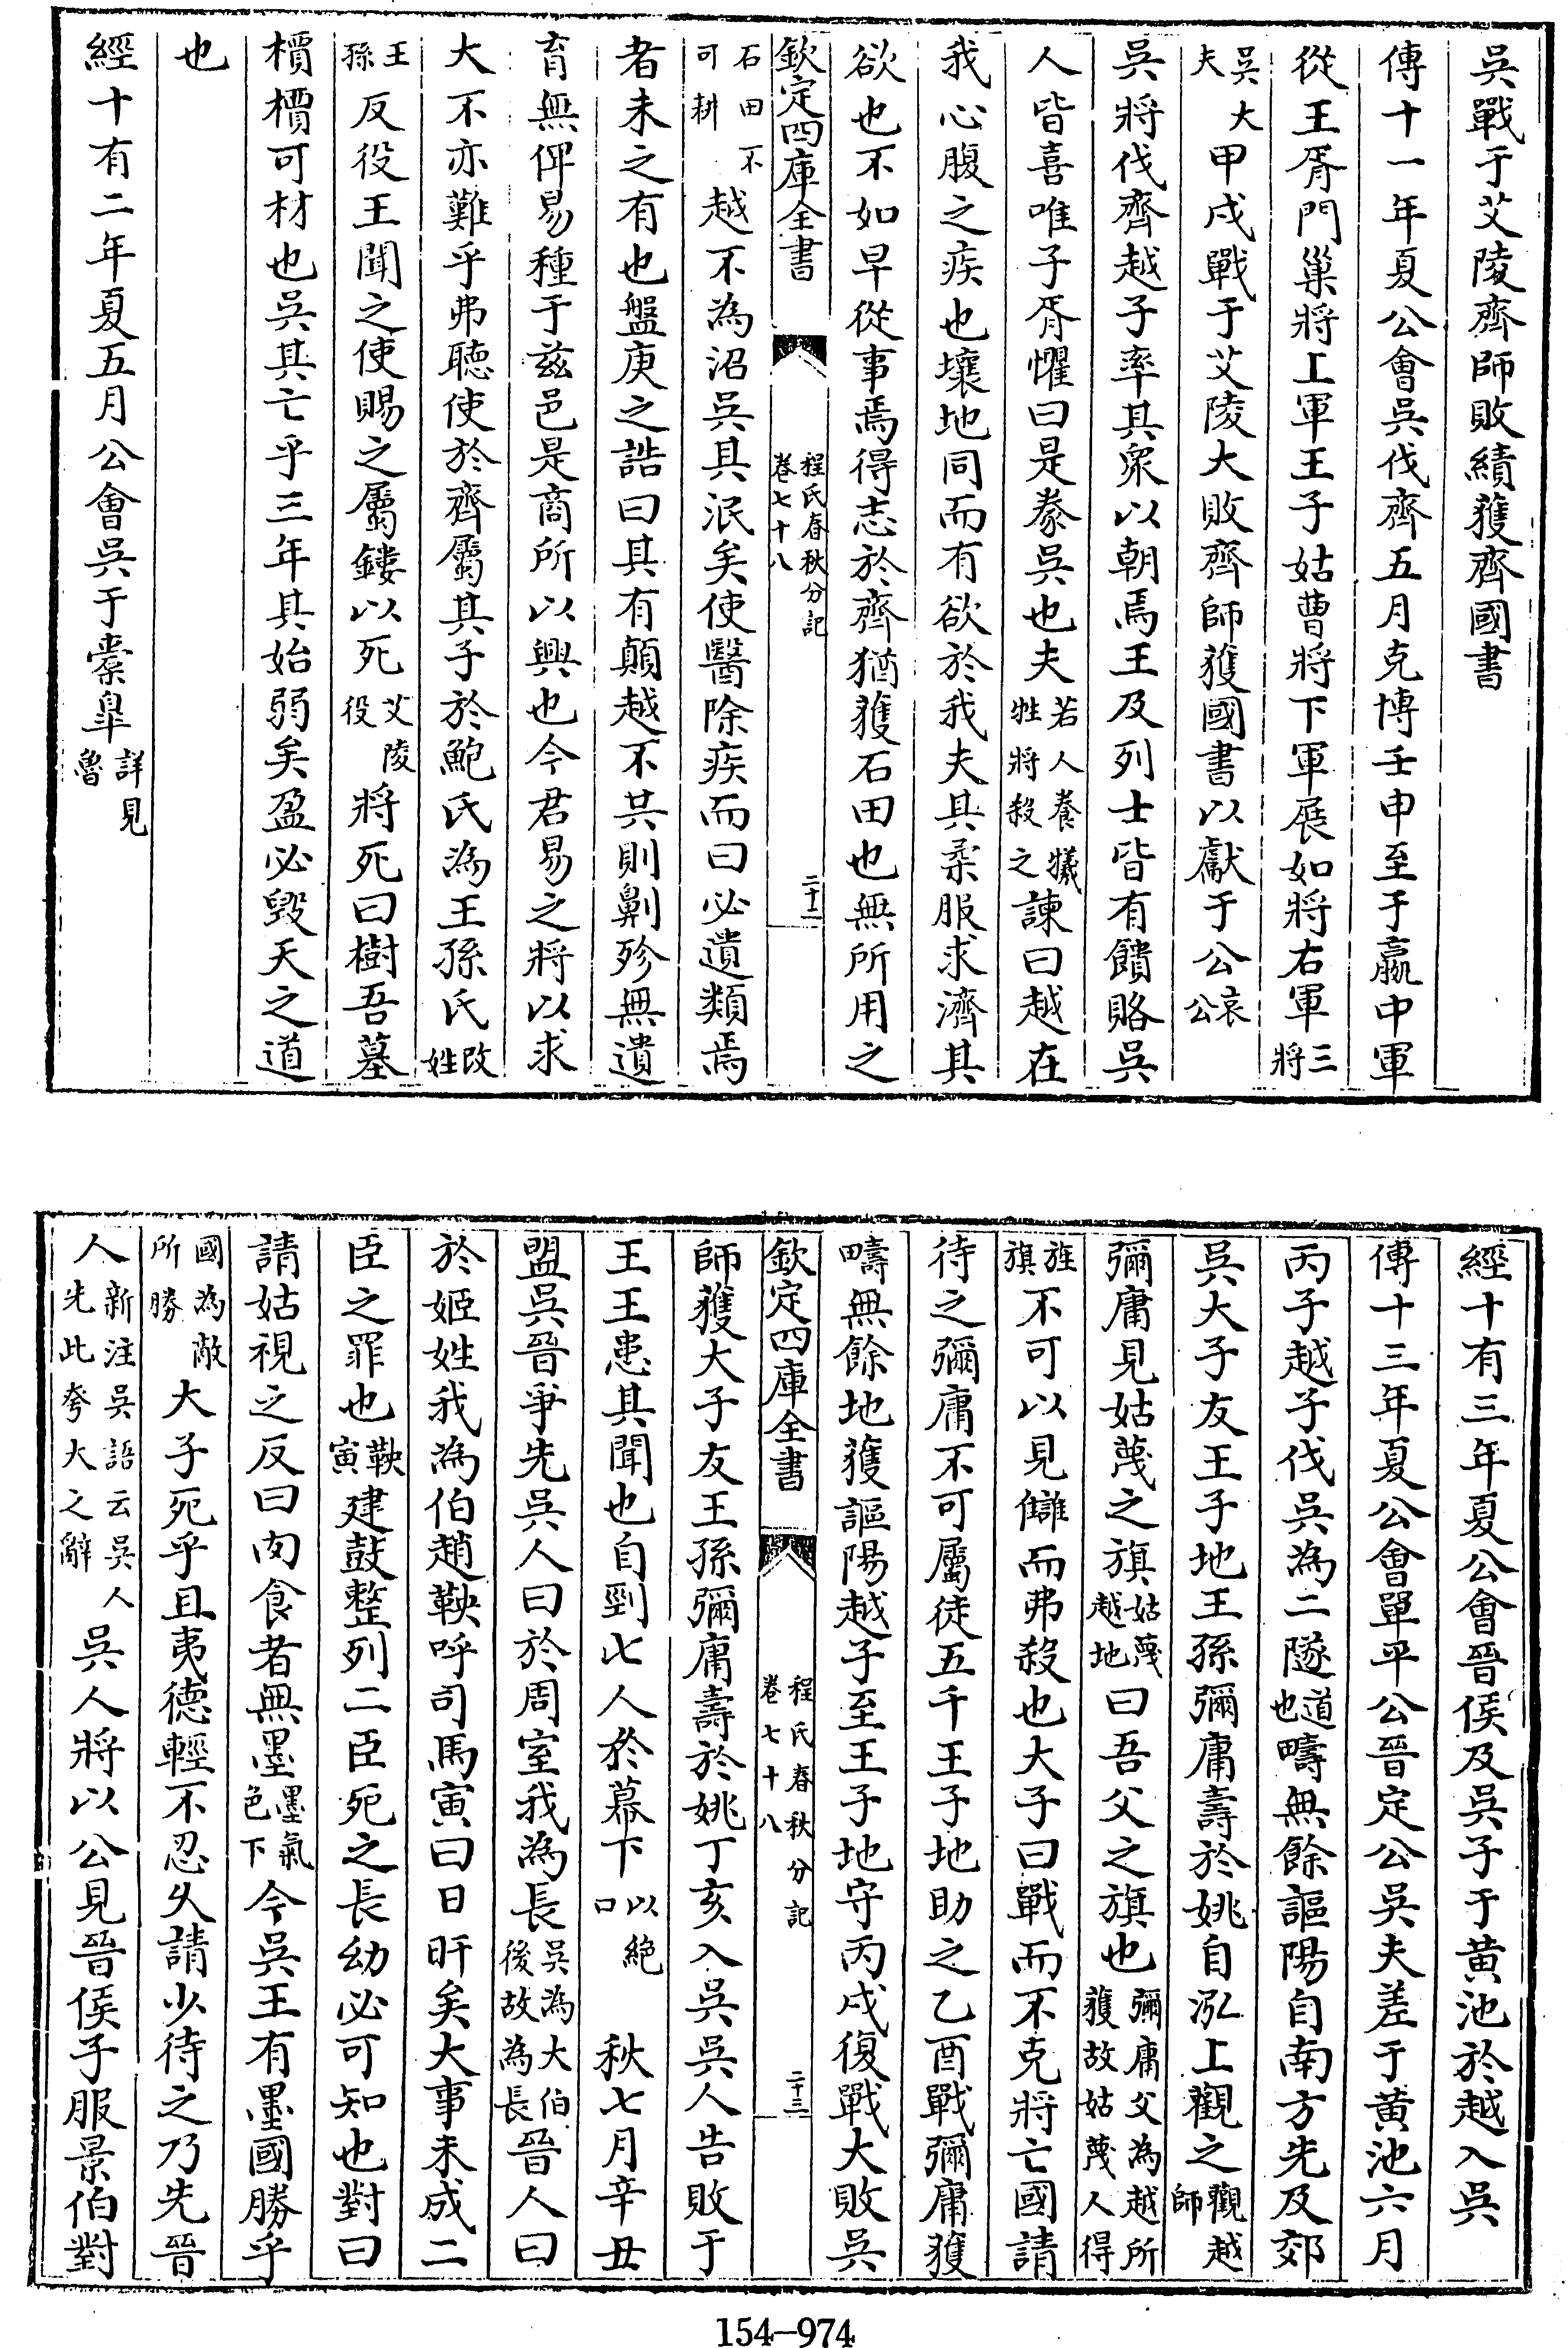 吳戰于艾陵齊師敗績獲齊國書
傳十一年夏公會吳伐齊五月克博壬申至于嬴中軍
從王胥門巢將上軍王子姑曹將下軍展如將右軍三將
吳大夫甲戌戰于艾陵大敗齊師獲國書以獻于公哀公
吳將伐齊越子率其衆以朝焉王及列士皆有饋賂吳
人皆喜唯子胥懼曰是豢吳也夫若人養犧牲將殺之諫曰越在
我心腹之疾也壤地同而有欲於我夫其柔服求濟其
欲也不如早從事焉得志於齊猶獲石田也無所用之
欽定四庫全書
程氏春秋分記
卷七十八
二十二
石田不可耕越不為沼吳其泯矣使醫除疾而曰必遺類焉
者未之有也盤庚之誥曰其有顛越不共則劓殄無遺
育無俾易種于兹邑是商所以興也今君易之將以求
大不亦難乎弗聽使於齊屬其子於鮑氏為王孫氏改姓
王孫反役王聞之使賜之屬鏤以死艾陵役將死曰樹吾墓
檟檟可材也吳其亡乎三年其始弱矣盈必毀天之道
也
經十有二年夏五月公會吳于橐臯詳見魯
經十有三年夏公會晉侯及吳子于黄池於越入吳
傳十三年夏公會單平公晉定公吳夫差于黄池六月
丙子越子伐吳為二隧道也疇無餘謳陽自南方先及郊
吳大子友王子地王孫彌庸壽於姚自泓上觀之觀越師
彌庸見姑蔑之旗姑蔑越地曰吾父之旗也彌庸父為越所獲故姑蔑人得
旌旗不可以見讎而弗殺也大子曰戰而不克將亡國請
待之彌庸不可屬徒五千王子地助之乙酉戰彌庸獲
疇無餘地獲謳陽越子至王子地守丙戌復戰大敗吳
欽定四庫全書
程氏春秋分記
卷七十八
二十三
師獲大子友王孫彌庸壽於姚丁亥入吳吳人告敗于
王王惡其聞也自剄七人於幕下以絶口秋七月辛丑
盟吳晉爭先吳人曰於周室我為長吳為大伯後故為長晉人曰
於姬姓我為伯趙鞅呼司馬寅曰日旰矣大事未成二
臣之罪也鞅寅建鼓整列二臣死之長幼必可知也對曰
請姑視之反曰肉食者無墨墨氣色下今吳王有墨國勝乎
國為敵所勝大子死乎且夷德輕不忍久請少待之乃先晉
人新注吳語云吳人先此夸大之辭吳人將以公見晉侯子服景伯對
154-974